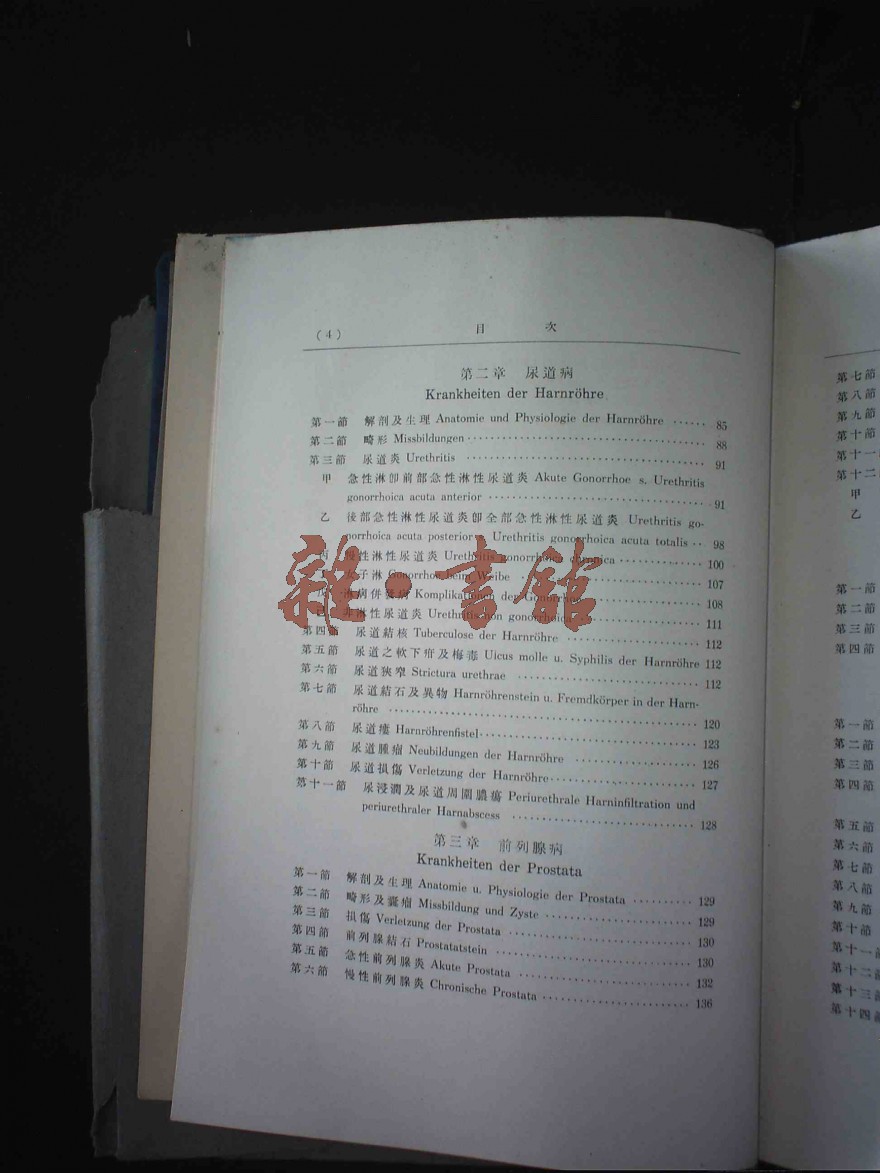 (4) 目 次
第二章 尿道病
Krankheiten der Harnröhre
第一節 解剖及生理 Anatomie und Physiologie der Harnröhre ······ 85
第二節 畸形 Missbildungen ······ 88
第三節 尿道炎 Urethritis ······ 91
甲 急性淋卽前部急性淋性尿道炎 Akute Gonorrhoe s. Urethritis
gonorrhoica acuta anterior ······ 91
乙 後部急性淋性尿道炎卽全部急性淋性尿道炎 Urethritis go-
norrhoica acuta posterior Urethritis gonorrhoica acuta totalis ·· 98
丙 性淋性尿道炎 Urethritis gonorrhoica chronica ······ 100
女子淋 Gonorrhoe beim Weibe ······ 107
淋病併發病 Komplikationen der Gonorrhoe ······ 108
非淋性尿道炎 Urethritis non gonorrhoica ······ 111
第四節 尿道結核 Tuberculose der Harnröhre ······ 112
第五節 尿道之軟下疳及梅毒 Uicus molle u. Syphilis der Harnröhre 112
第六節 尿道狹窄 Strictura urethrae ······ 112
第七節 尿道結石及異物 Harnröhrenstein u. Fremdkörper in der Harn-
röhre ······ 120
第八節 尿道瘻 Harnröhrenfistel ······ 123
第九節 尿道腫瘤 Neubildungen der Harnröhre ······ 126
第十節 尿道損傷 Verletzung der Harnröhre ······ 127
第十一節 尿浸潤及尿道周圍膿瘍 Periurethrale Harninfiltration und
periurethraler Harnabscess ······ 128
第三章 前列腺病
Krankheiten der Prostata
第一節 解剖及生理 Anatomie u. Physiologie der Prostata ······ 129
第二節 畸形及囊瘤 Missbildung und Zyste ······ 129
第三節 損傷 Verletzung der Prostata ······ 130
第四節 前列腺結石 Prostatatstein ······ 130
第五節 急性前列腺炎 Akute Prostata ······ 132
第六節 慢性前列腺炎 Chronische Prostata ······ 136
第七節
第八節
第九節
第十節
第十一
第十二
甲
乙
第一節
第二節
第三節
第四節
第一節
第二節
第三節
第四節
第五節
第六節
第七節
第八節
第九節
第十節
第十一節
第十二節
第十三節
第十四節
雜·書館